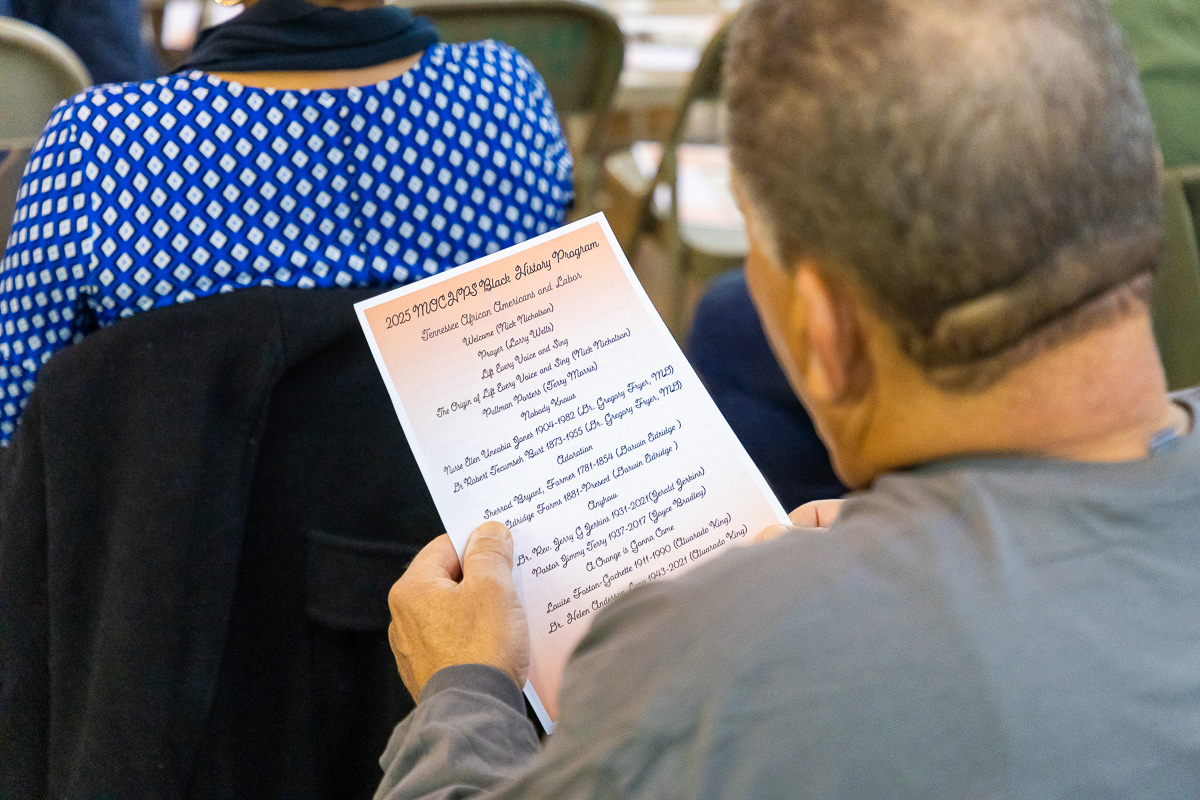 2025 MOCHPS Black History Program
Tennessee African Americans and Labor
Welcome (Nick Nicholson)
Prayer (Larry Wells)
Lift Every Voice and Sing
The Origin of Lift Every Voice and Sing (Nick Nicholson)
Pullman Porters (Terry Morris)
Nobody Knows
Nurse Ellen Uneobia Jones 1904-1982 (Dr. Gregory Fryer, MD)
Dr Robert Tecumseh Burt 1873-1955 (Dr. Gregory Fryer, MD)
Adoration
Sherrod Bryant, Farmer 1781-1854 (Darwin Eldridge )
Eldridge Farms 1881-Present (Darwin Eldridge )
Anyhow
Dr. Rev. Jerry G Jerkins 1931-2021(Gerald Jerkins)
Pastor Jimmy Terry 1937-2017 (Joyce Bradley)
A Change is Gonna Come
Louise Gachette 1911-1990 (Alvarado King)
Dr. Helen Anderson Long 1943-2021 (Alvarado King)